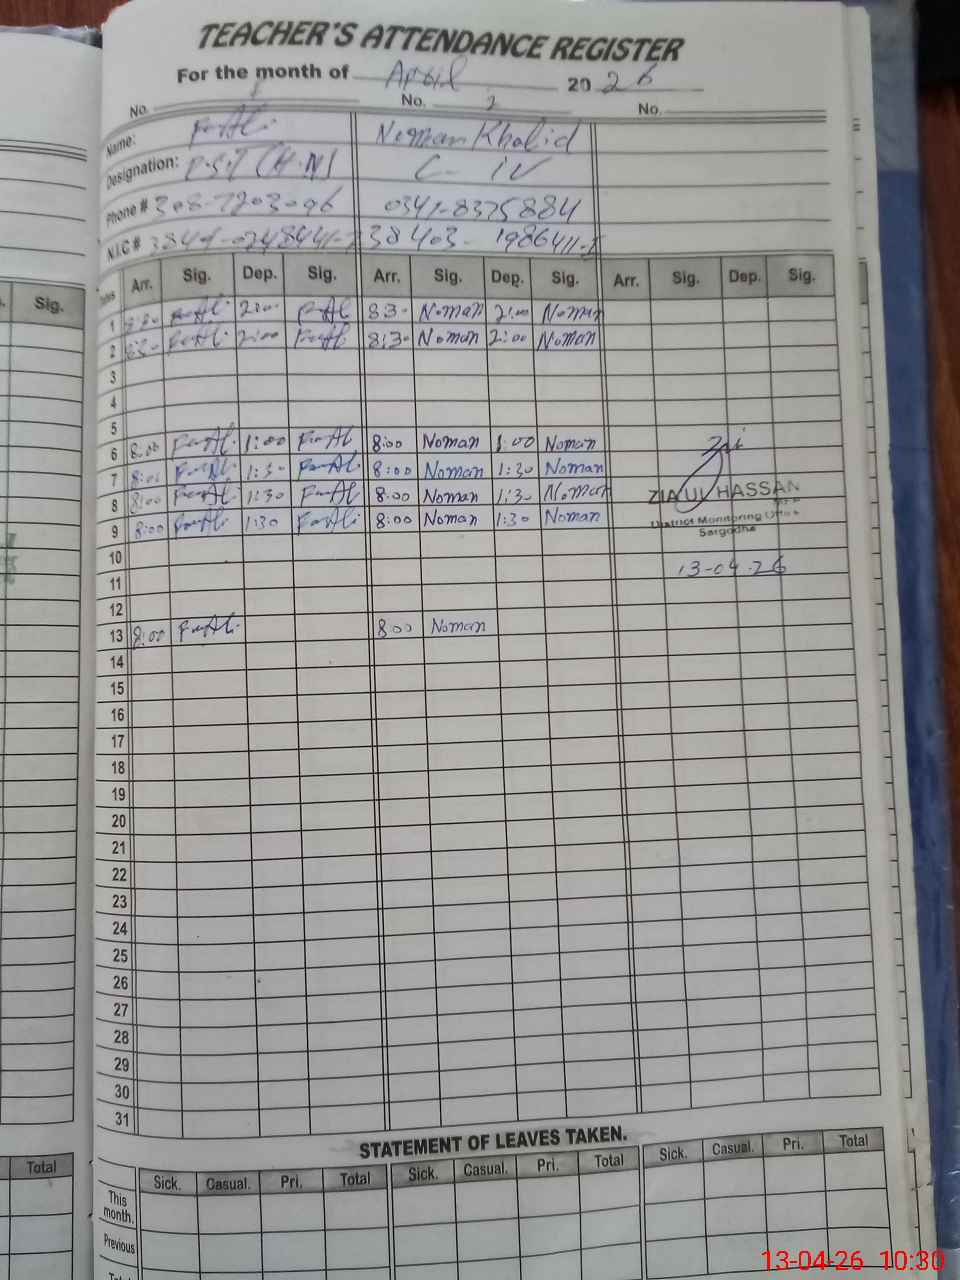 TEACHER'S ATTENDANCE REGISTER
For the month of April 2026
No. 1 No. 2 No.
Name: Noman Khalid
Designation: P.S.T (H.M) C-IV
Phone # 308-7203096 0341-8375884
N.I.C # 38403-1986411-5
Sig. Dates Arr. Sig. Dep. Sig. Arr. Sig. Dep. Sig. Arr. Sig. Dep. Sig.
1 8:30 2:00 83- Noman 2:00 Noman
2 83- 2:00 8:3- Noman 2:00 Noman
3
4
5
6 8:00 1:00 8:00 Noman 1:00 Noman
7 8:00 1:30 8:00 Noman 1:30 Noman
8 8:00 1:30 8:00 Noman 1:30 Noman
ZIA UL HASSAN
9 8:00 1:30 8:00 Noman 1:30 Noman
District Monitoring Office
Sargodha
10
11 13-04-26
12
13 8:00 8:00 Noman
14
15
16
17
18
19
20
21
22
23
24
25
26
27
28
29
30
31
STATEMENT OF LEAVES TAKEN.
Total Sick. Casual. Pri. Total Sick. Casual. Pri. Total Sick. Casual. Pri. Total
This month.
Previous
13-04-26 10:30